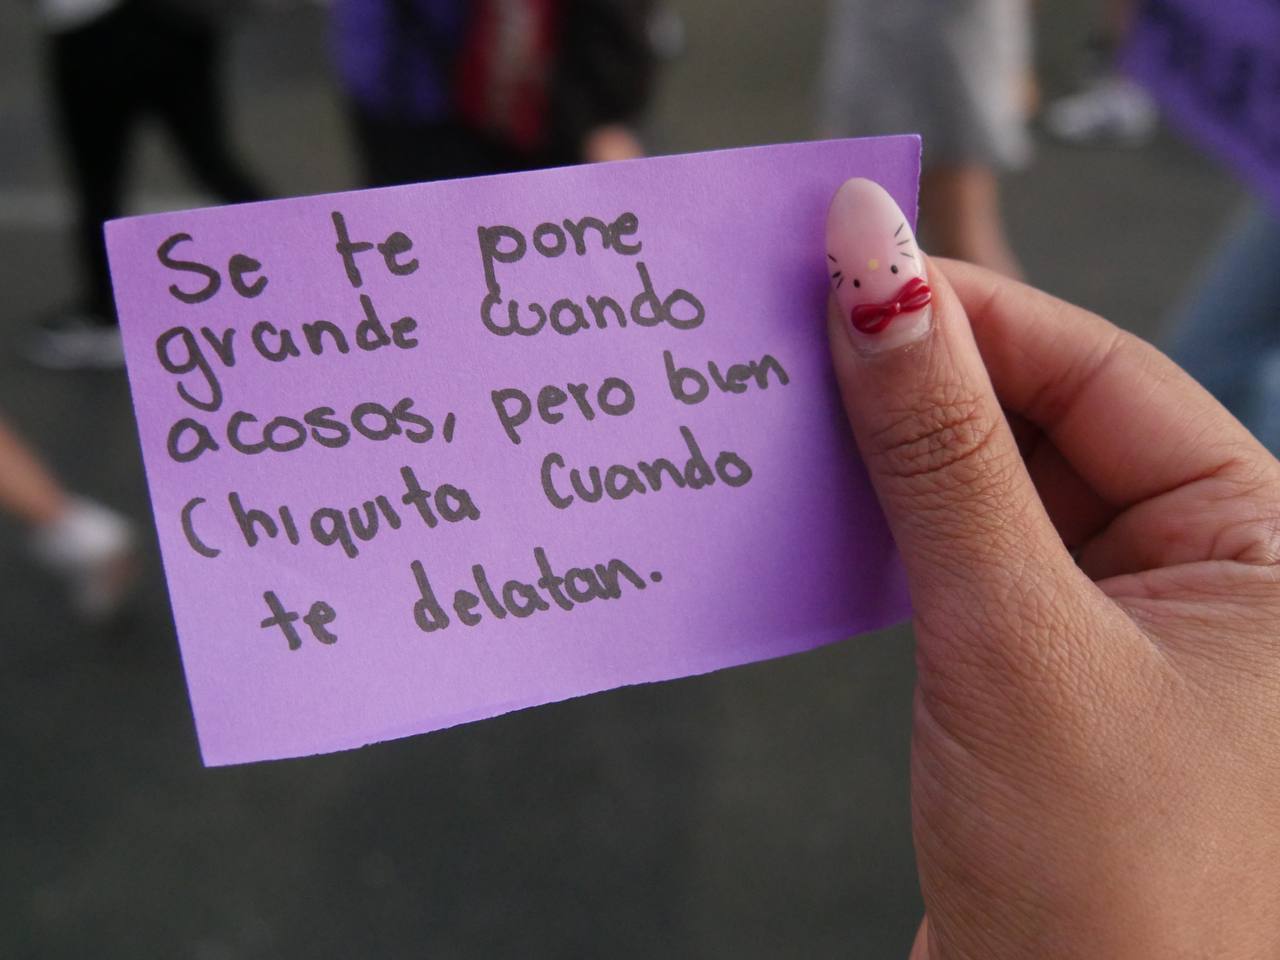 Se te pone
grande cuando
acosas, pero bien
Chiquita Cuando
te delatan.